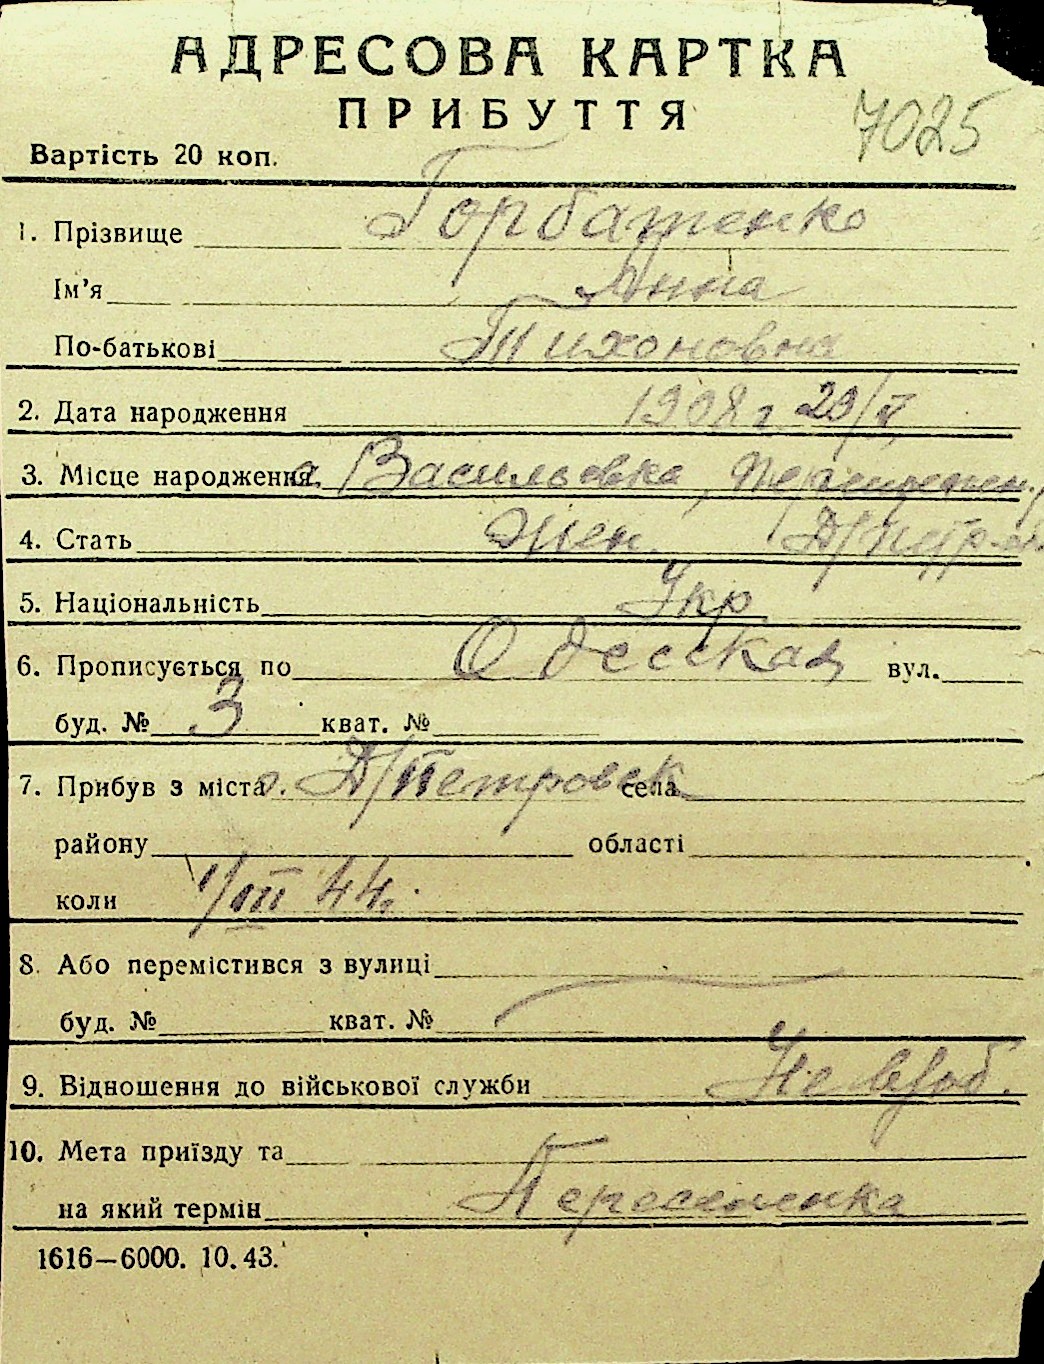 АДРЕСОВА КАРТКА
ПРИБУТТЯ
7025
Вартість 20 коп.
1. Прізвище Горбатенко
Ім'я Анна
По-батькові Тихоновна
2. Дата народження 1908 г. 29/V
3. Місце народження с. Васильевка,
4. Стать Жен. Д/Петр-ой
5. Національність Укр
6. Прописується по Одесская вул.
буд. № 3 кват. №
7. Прибув з міста г. Д/Петровск села
району области
коли 1/III 44 г.
8. Або перемістився з вулиці
буд. № кват. №
9. Відношення до військової служби Не в/об.
10. Мета приїзду та
на який термін
1616—6000. 10.43.